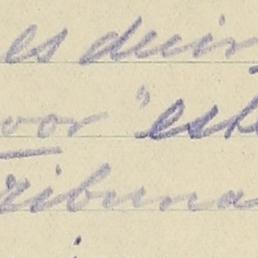 es deun
oor "est
ribuna